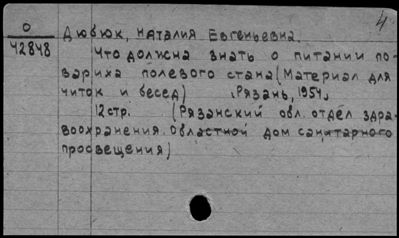 4
О Дюбюк, Наталия Евгеньевна.
42848 Что должна знать о питании по-
вариха полевого стана (Материал для
читок и бесед) Рязань, 1954,
12 стр. (Рязанский обл. отдел здра-
воохранения. Областной дом санитарного
просвещения)